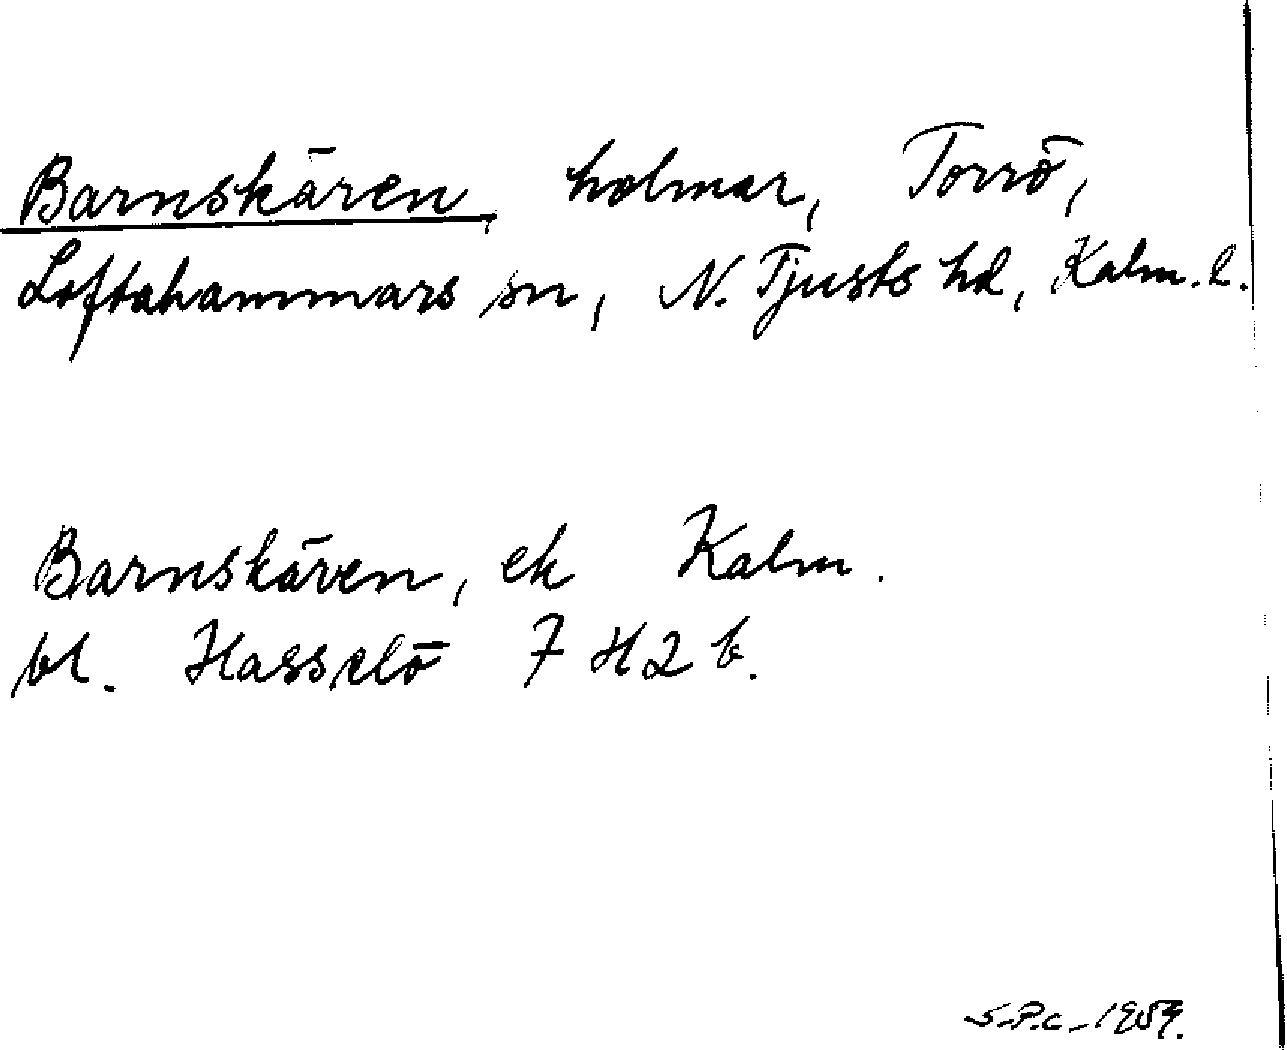 Barnskären, holmar, Torrö,
Loftahammars sn, N. Tjusts hd, Kalm. l.
Barnskären, ek Kalm.
bl. Hasselö 7 H 2 b.
S.P.C. 1959.